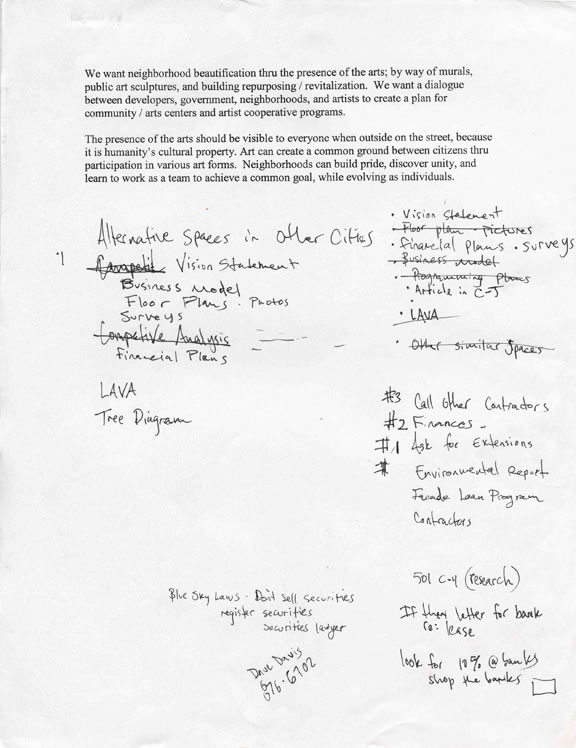 We want neighborhood beautification thru the presence of the arts; by way of murals,
public art sculptures, and building repurposing / revitalization. We want a dialogue
between developers, government, neighborhoods, and artists to create a plan for
community / arts centers and artist cooperative programs.
The presence of the arts should be visible to everyone when outside on the street, because
it is humanity's cultural property. Art can create a common ground between citizens thru
participation in various art forms. Neighborhoods can build pride, discover unity, and
learn to work as a team to achieve a common goal, while evolving as individuals.
Alternative Spaces in Other Cities
Vision Statement
Business Model
Floor Plans · Photos
Surveys
Competive Analysis
Financial Plans
LAVA
Tree Diagram
· Vision Statement
· Floor plan · Pictures
· financial plans · surveys
· Business model
· Programming plans
· Article in C-J
· LAVA
· Other similar spaces
#3 Call Other Contractors
#2 Finances -
#1 Ask for Extensions
# Environmental Report
Facade Loan Program
Contractors
501 c-4 (research)
If then letter for bank
re: lease
look for 10% @ banks
shop the banks
Blue Sky Laws - Don't sell securities
register securities
securities lawyer
Dave Davis
676-6702